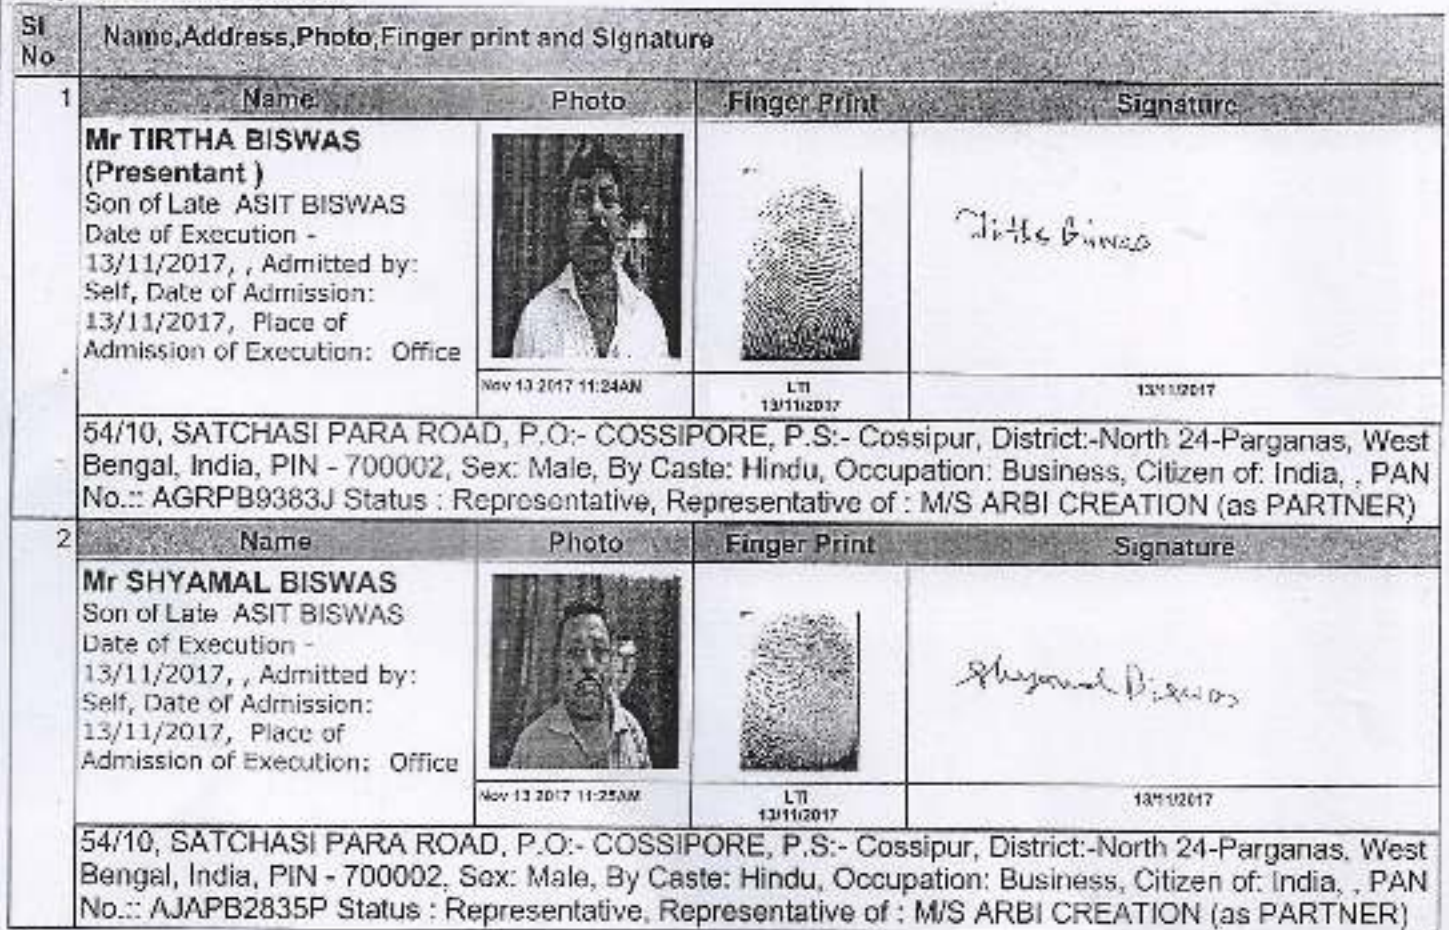 Sl No
Name,Address,Photo,Finger print and Signature
1
Name
Photo
Finger Print
Signature
Mr TIRTHA BISWAS
(Presentant )
Son of Late ASIT BISWAS
Date of Execution -
13/11/2017, , Admitted by:
Self, Date of Admission:
13/11/2017, Place of
Admission of Execution: Office
Nov 13 2017 11:24AM
LTI
13/11/2017
Tirtha Biswas
13/11/2017
54/10, SATCHASI PARA ROAD, P.O:- COSSIPORE, P.S:- Cossipur, District:-North 24-Parganas, West
Bengal, India, PIN - 700002, Sex: Male, By Caste: Hindu, Occupation: Business, Citizen of: India, , PAN
No.:: AGRPB9383J Status : Representative, Representative of : M/S ARBI CREATION (as PARTNER)
2
Name
Photo
Finger Print
Signature
Mr SHYAMAL BISWAS
Son of Late ASIT BISWAS
Date of Execution -
13/11/2017, , Admitted by:
Self, Date of Admission:
13/11/2017, Place of
Admission of Execution: Office
Nov 13 2017 11:25AM
LTI
13/11/2017
Shyamal Biswas
13/11/2017
54/10, SATCHASI PARA ROAD, P.O:- COSSIPORE, P.S:- Cossipur, District:-North 24-Parganas, West
Bengal, India, PIN - 700002, Sex: Male, By Caste: Hindu, Occupation: Business, Citizen of: India, , PAN
No.:: AJAPB2835P Status : Representative, Representative of : M/S ARBI CREATION (as PARTNER)